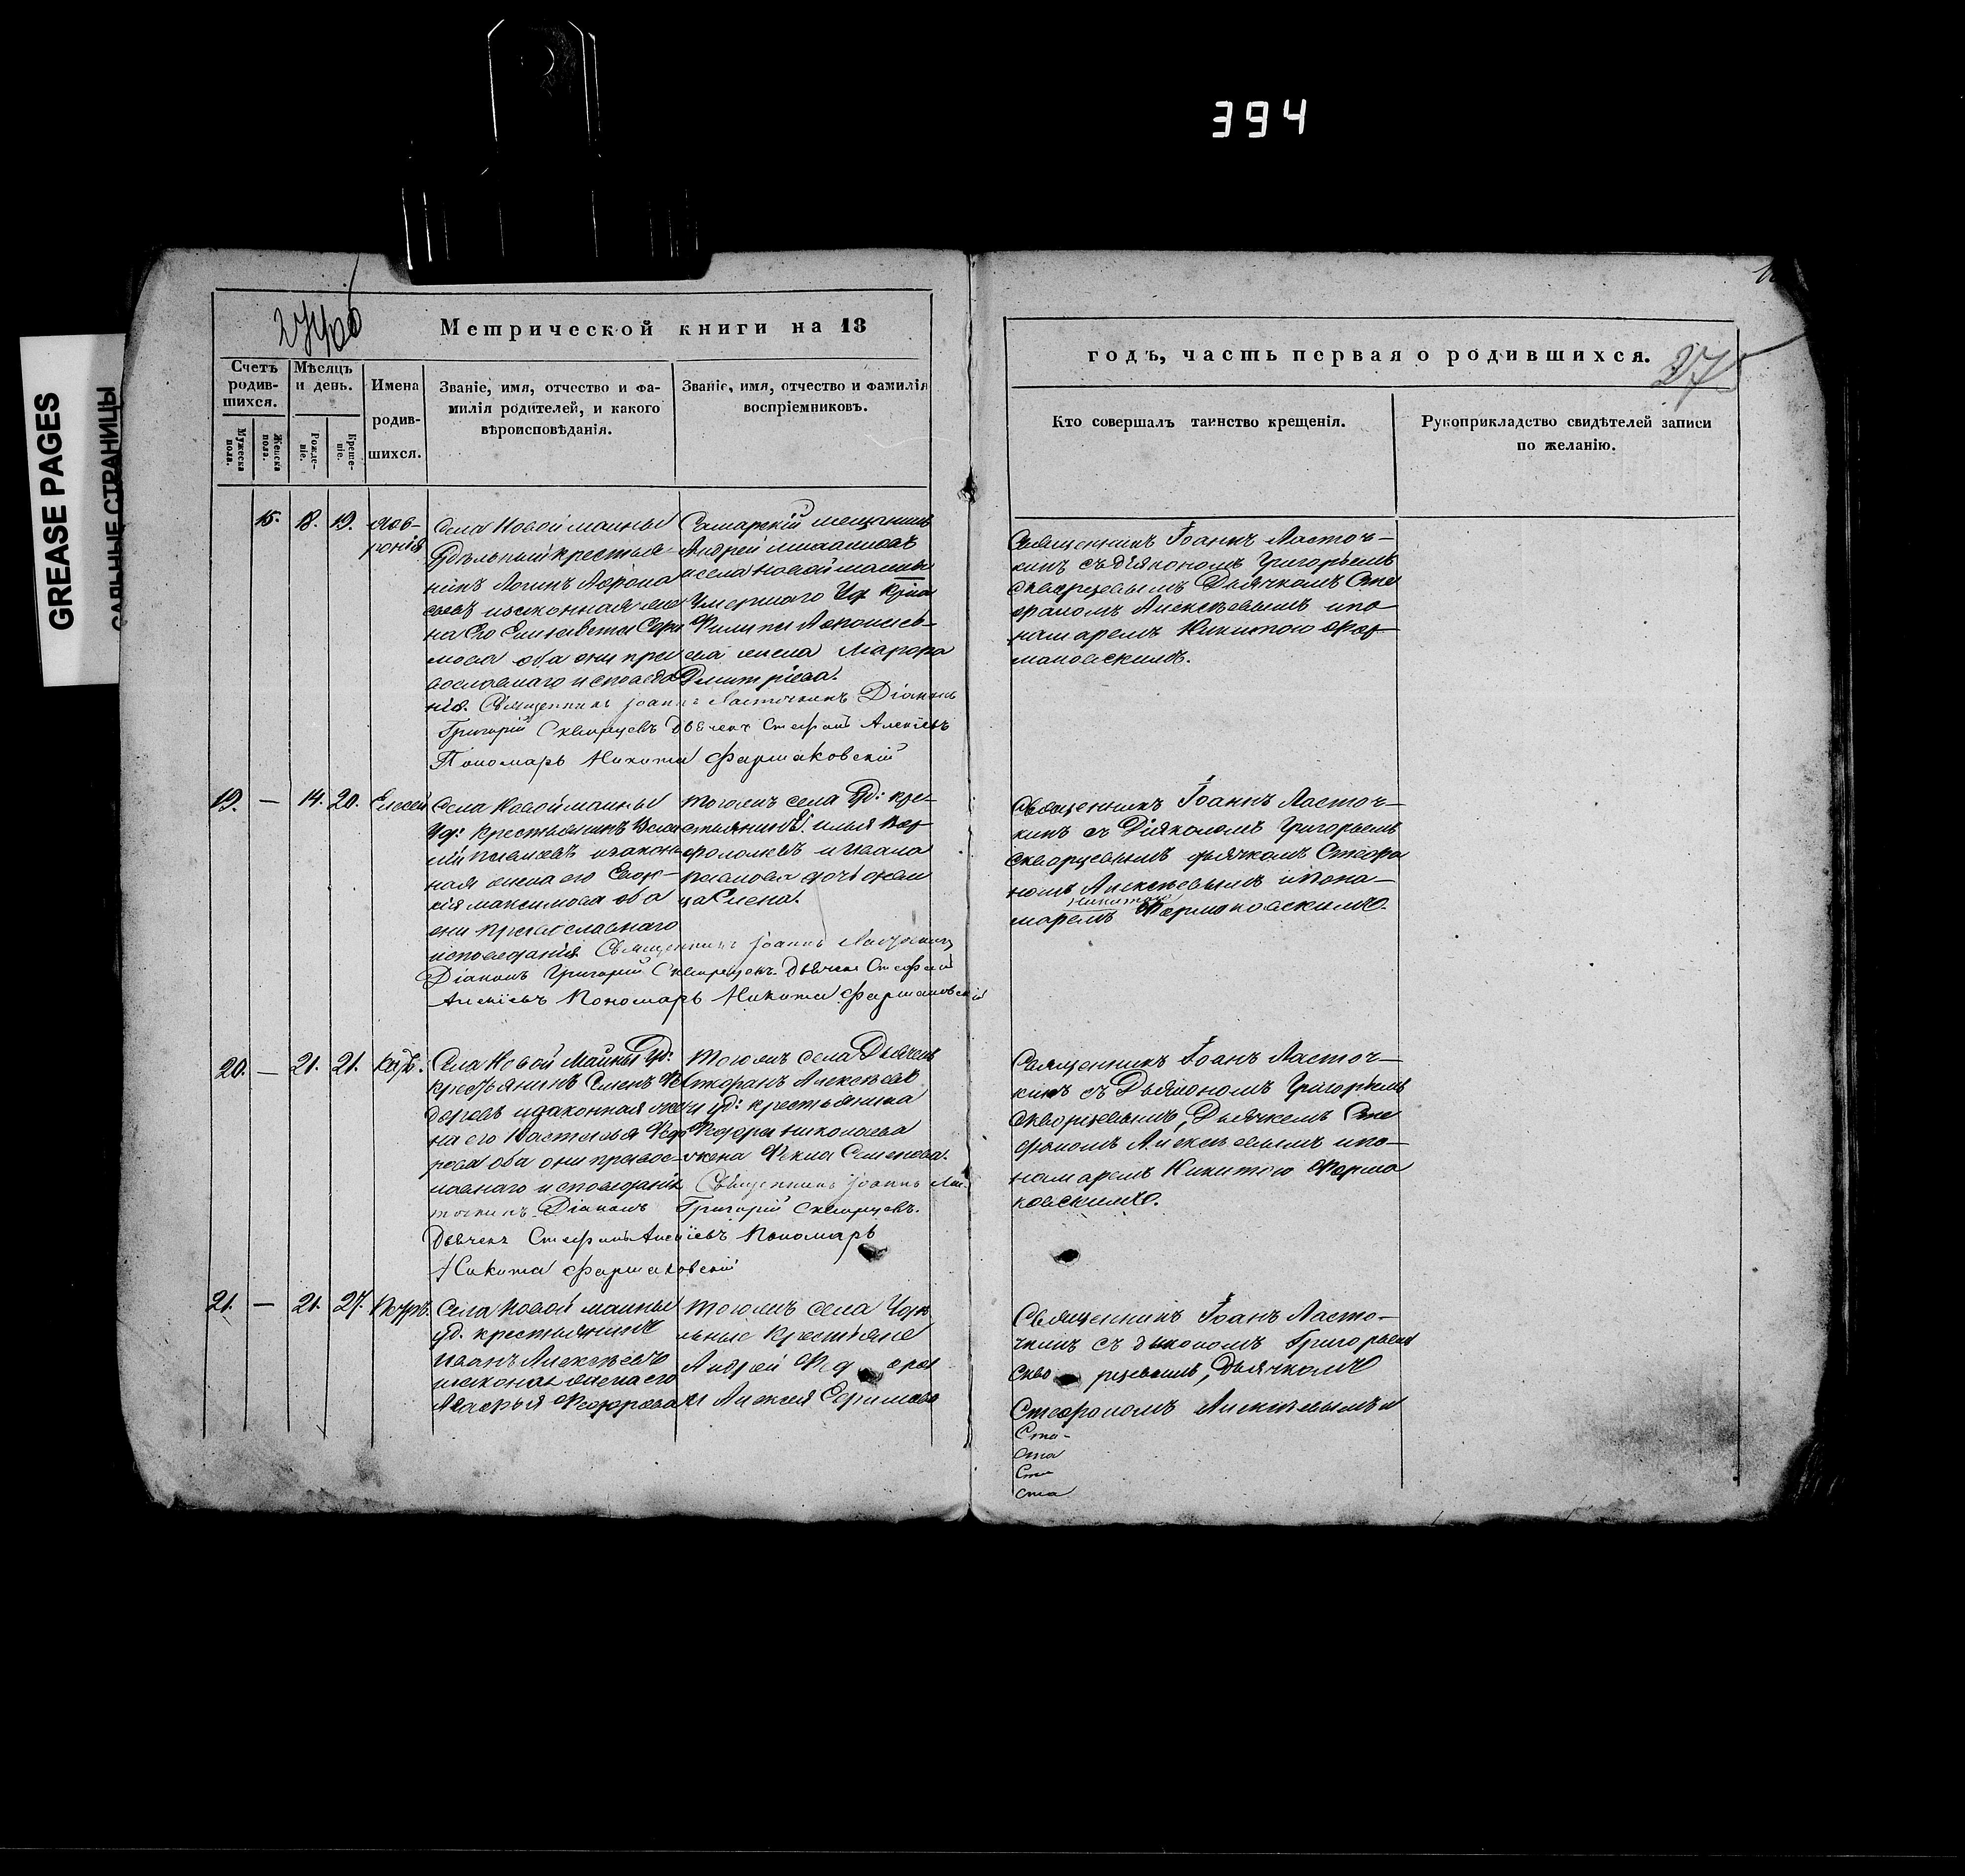 394
GREASE PAGES
САЛЬНЫЕ СТРАНИЦЫ
Метрической книги на 18
Счетъ родив-шихся.
Мужеска пола.
Женска пола.
Мѣсяцъ и день.
Рожде-ніе.
Креще-ніе.
Имена родив-шихся.
Званіе, имя, отчество и фа-
милія родителей, и какого
вѣроисповѣданія.
Званіе, имя, отчество и фамилія
воспріемниковъ.
15. 18. 19.
Села Новой маины
крестья-
нинъ Логинъ
законная же
на его Елисавета
оба они пра
вославнаго исповѣда
нія. Священникъ Іоаннъ Ласточкинъ Діаконъ
Григорій Скворцовъ Дьячекъ Стефанъ Алексіевъ
Пономарь Никита Фармаковскій
мещанинъ
Андрей
и села Новой маины
умершаго Уд
Филипа
жена Марфа
Дмитріева.
19. — 14. 20. Елисей
Села Новой маины
Уд: крестьянинъ
и закон
ная жена его Евдо-
кія Максимова оба
они православнаго
исповеданія Священникъ Іоаннъ Ласточкинъ
Діаконъ Григорій Скворцовъ. Дьячекъ Стефанъ
Алексіевъ Пономарь Никита Фармаковскій
тогожъ села Уд: кре-
стьянинъ Илья
и Ивана
дочь деви
ца Елена.
20. — 21. 21.
Села Новой Маины Уд:
крестьянинъ Семенъ Фе
доровъ и законная жен
на его Настасья Федо
рова оба они правос-
лавнаго исповеданія Священникъ Іоаннъ Лас
точкинъ Діаконъ Григорій Скворцовъ.
Дьячекъ Стефанъ Алексіевъ Пономарь
Никита Фармаковскій
тогожъ села Дьячекъ
Стефанъ Алексѣевъ
и уд: крестьянина
Федора Николаева
жена Фекла Семенова.
21. — 21. 27. Петръ.
Села Новой маины
уд. крестьянинъ
Иванъ Алексѣевъ
и законная жена его
Федорова
тогожъ села Удѣ
льные крестьяне
Андрей Фед оров
и Ефимова
годъ, часть первая о родившихся.
27
Кто совершалъ таинство крещенія.
Рукоприкладство свидѣтелей записи
по желанію.
Священникъ Іоаннъ Ласточ-
кинъ съ Діякономъ Григорьемъ
Скворцевымъ Дьячкомъ Сте
фаномъ Алексѣевымъ и по-
намаремъ Никитою Фар-
маковскимъ.
Священникъ Іоаннъ Ласточ-
кинъ съ Діякономъ Григорьемъ
Скворцевымъ дьячкомъ Стефа
номъ Алексѣевымъ и Пона-
маремъ Никитою Фармаковскимъ.
Священникъ Іоанъ Ласточ-
кинъ съ Дьякономъ Григорьемъ
Скворцевымъ, Дьячкемъ Сте
фаномъ Алексѣевымъ и по-
намаремъ Никитою Фарма
ковскимъ.
Священникъ Іоанъ Ласто-
чкинъ съ дьякономъ Григорьемъ
Скво рцевымъ, Дьячкомъ
Стефаномъ Алексѣевымъ и
Ста-
ста
Сте
ста